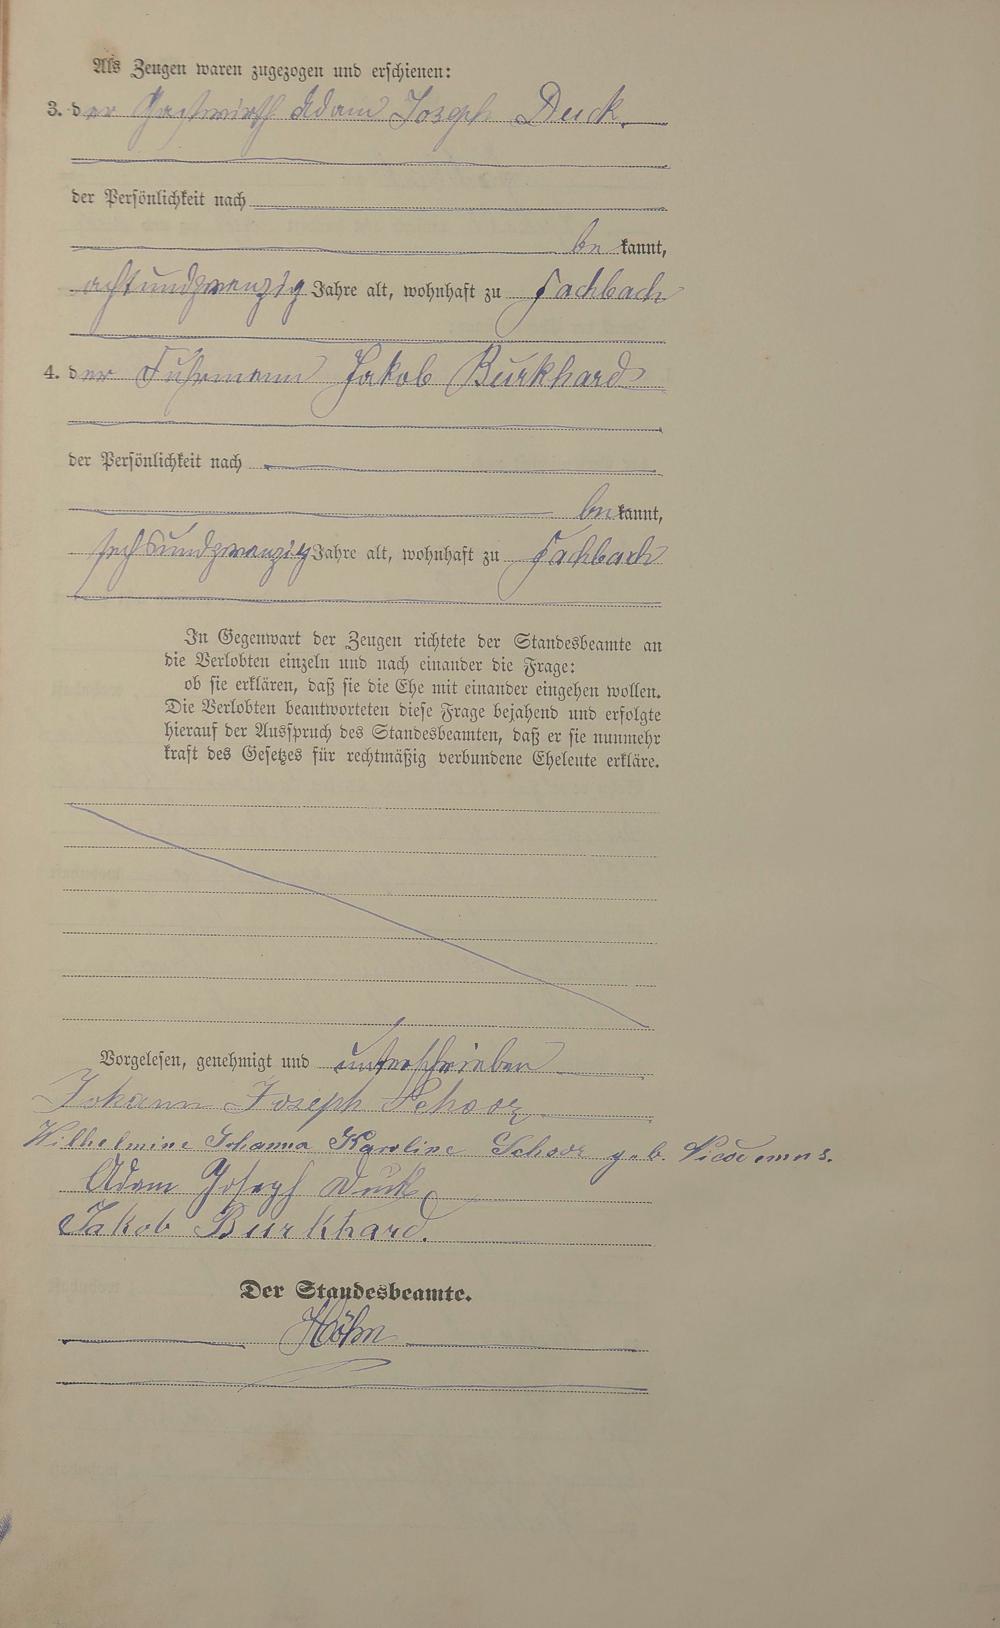 Als Zeugen waren zugezogen und erschienen:
3. der Gastwirth Adam Joseph Duck
der Persönlichkeit nach
be kannt,
achtundzwanzig Jahre alt, wohnhaft zu Fachbach
4. der Fuhrmann Jakob Burkhard
der Persönlichkeit nach
be kannt,
sechsundzwanzig Jahre alt, wohnhaft zu Fachbach
In Gegenwart der Zeugen richtete der Standesbeamte an
die Verlobten einzeln und nach einander die Frage:
ob sie erklären, daß sie die Ehe mit einander eingehen wollen.
Die Verlobten beantworteten diese Frage bejahend und erfolgte
hierauf der Ausspruch des Standesbeamten, daß er sie nunmehr
kraft des Gesetzes für rechtmäßig verbundene Eheleute erkläre.
Vorgelesen, genehmigt und unterschrieben
Johann Joseph Schoor
Wilhelmine Johanna Karoline Schoor geb.
Adam Joseph Duck
Jakob Burkhard.
Der Standesbeamte.
Höhn